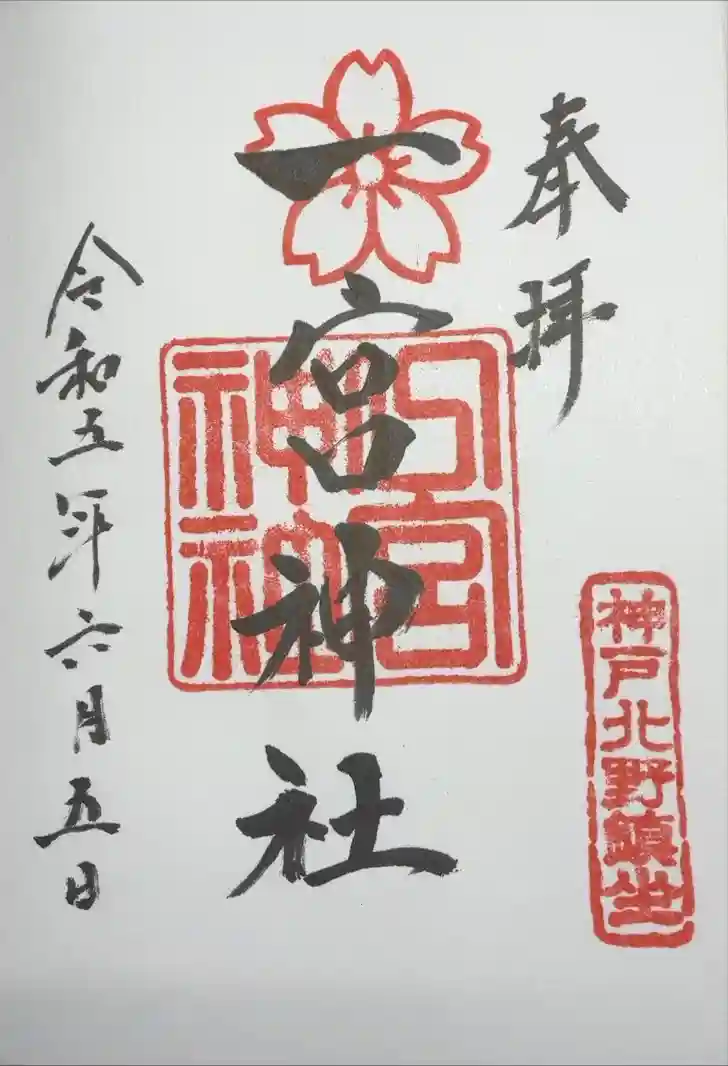 奉拝
神戸北野鎮坐
一宮神社
一宮
神社
令和五年六月五日